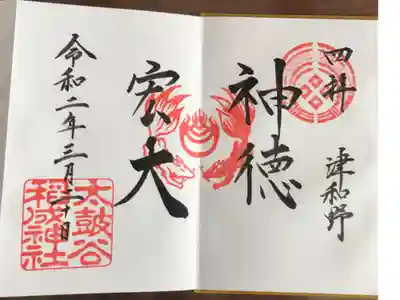 四社
津和野
神徳
宏大
令和二年三月二十日
太鼓谷
稲成神社